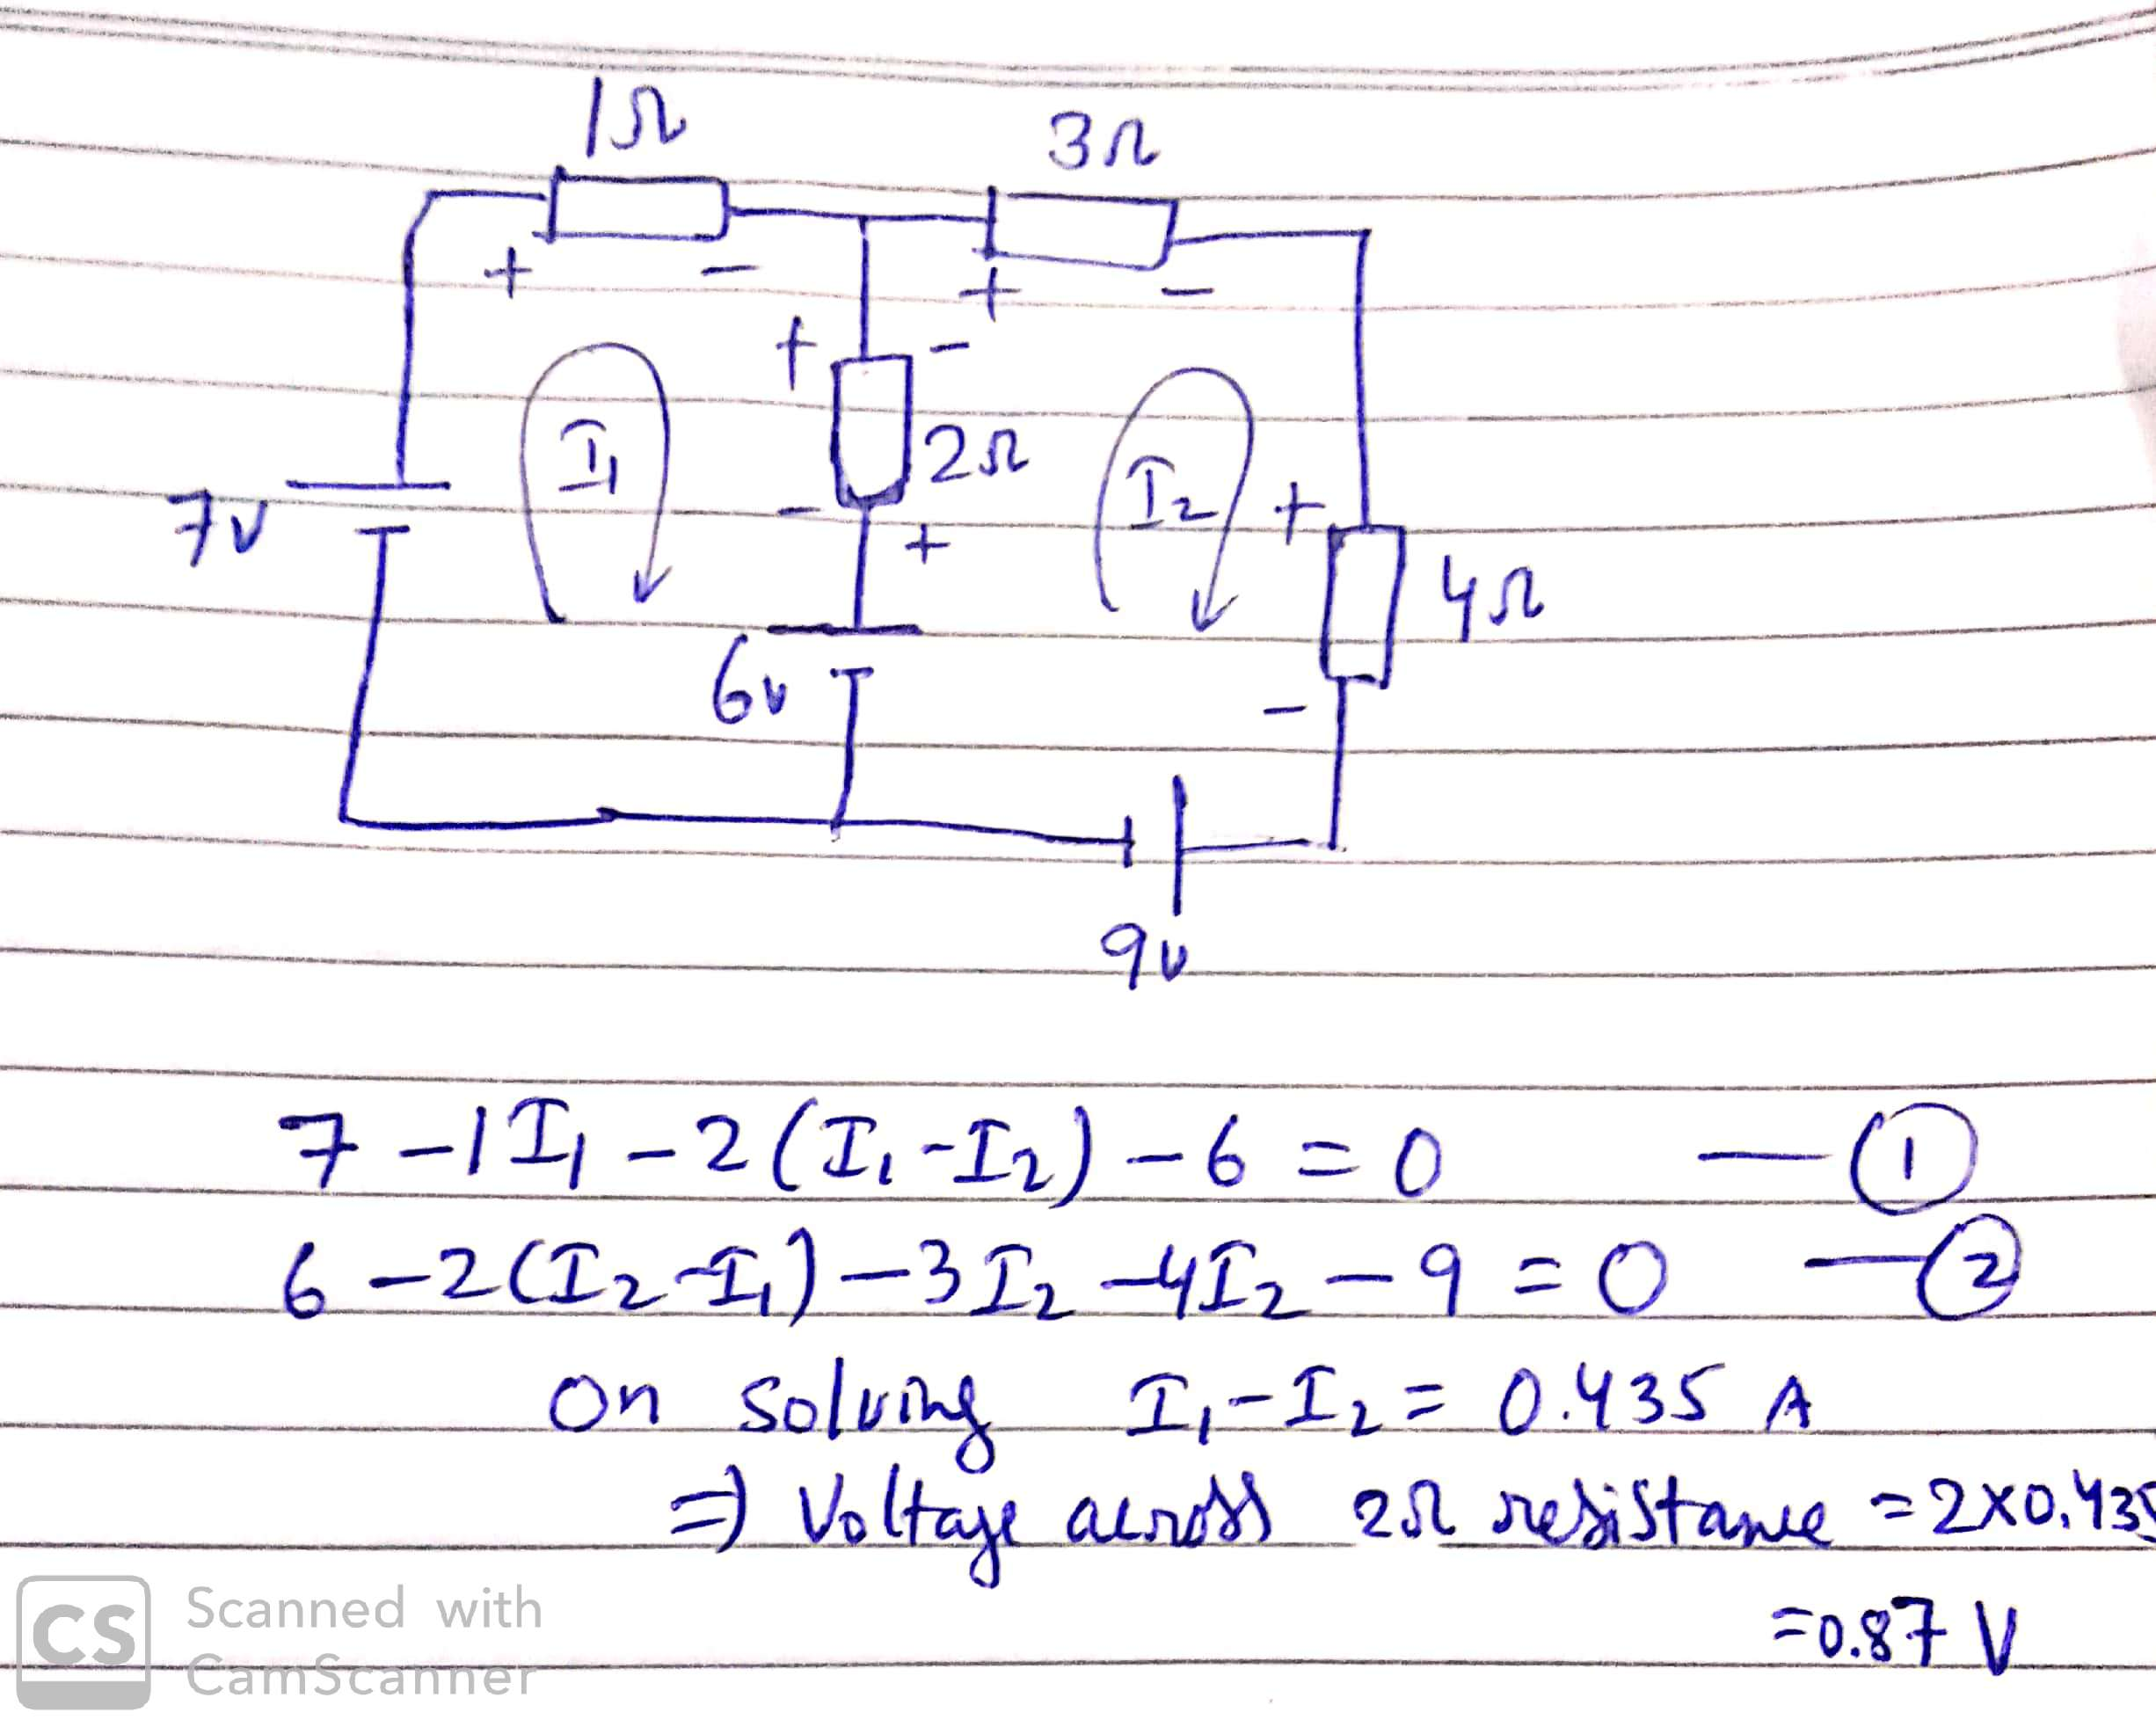 1Ω
3Ω
+ - + -
+ -
I₁
2Ω
I₂
+
7v
- +
4Ω
6v
-
9v
7 - 1I₁ - 2(I₁ - I₂) - 6 = 0 — ①
6 - 2(I₂ - I₁) - 3I₂ - 4I₂ - 9 = 0 — ②
On solving I₁ - I₂ = 0.435 A
⇒ Voltage across 2Ω resistance = 2×0.435
= 0.87 V
CS
Scanned with
CamScanner